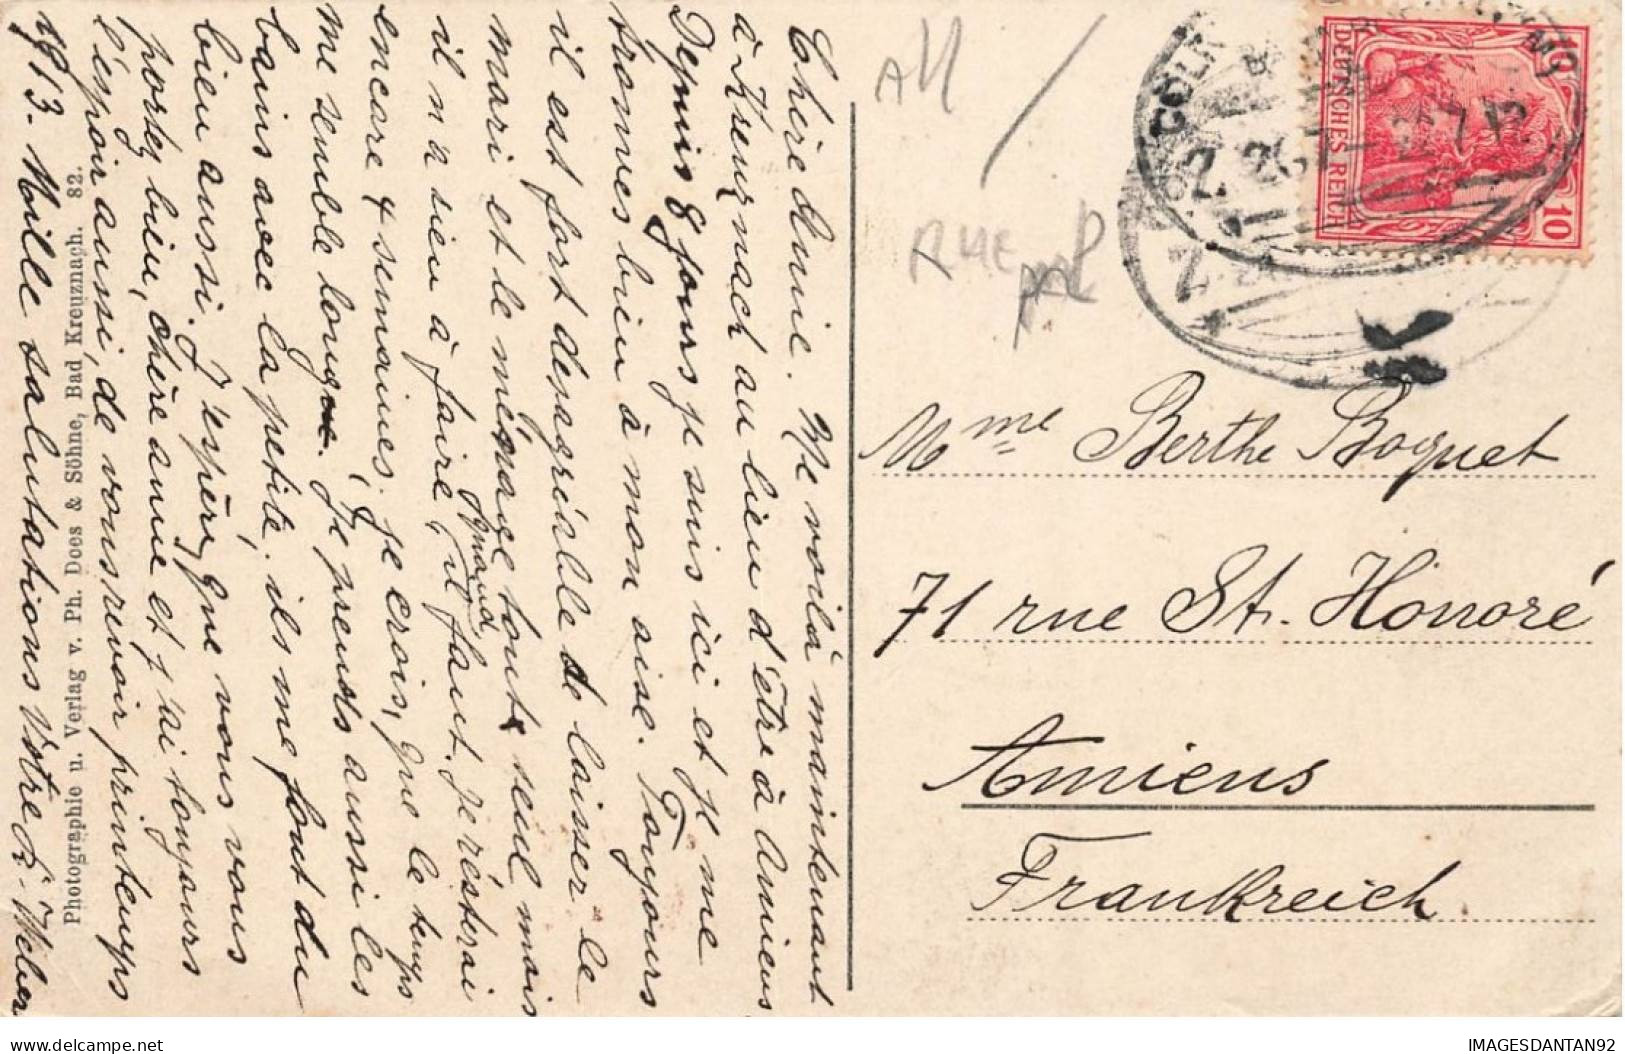 Chère Amie. Me voilà maintenant
à Kreuznach au lieu d'être à Amiens
Depuis 8 jours je suis ici et je me
trouves bien à mon aise. Toujours
il est fort désagréable de laisser le
mari et le ménage tout seul mais
Armand
il n'a rien à faire, il faut. Je résterai
encore 4 semaines, je crois, que le temps
me semble longue. Je prends aussi les
bains avec la petite, ils me font du
bien aussi. J'espère, que vous vous
portez bien, chère amie et j'ai toujours
l'espoir aussi, de vous revoir printemps
1913. Mille salutations Vôtre L. Weber
Photographie u. Verlag v. Ph. Dees & Söhne, Bad Kreuznach. 82.
All
RHE
DEUTSCHES REICH
10
10
Mme Berthe Boquet
71 rue St. Honoré
Amiens
Frankreich
IMAGESDANTAN92
www.delcampe.net